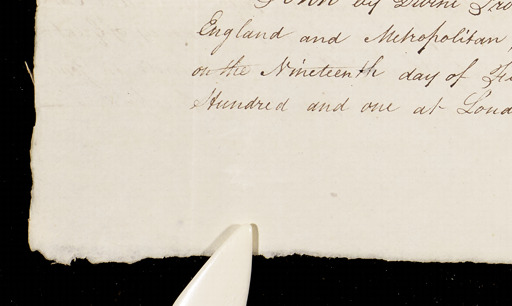 John by Divine Pro
England and Metropolitan
on the Nineteenth day of Fe
Hundred and one at Lond